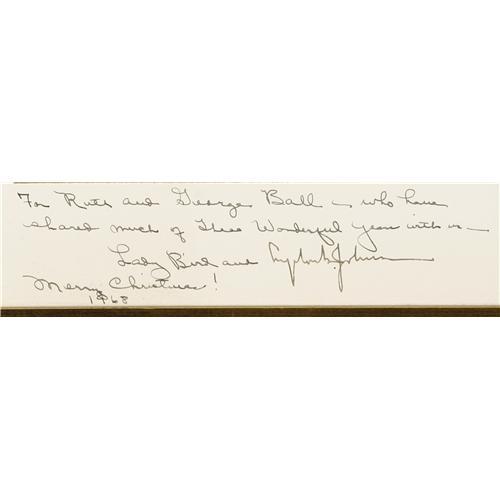 For Ruth and George Ball — who have
shared much of these Wonderful years with us —
Lady Bird and Lyndon B. Johnson
Merry Christmas!
1968